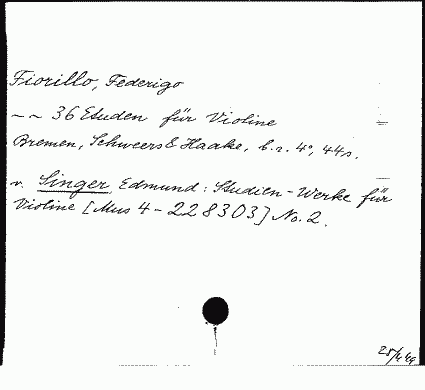 Fiorillo, Federigo
~ ~ 36 Etuden für Violine
Bremen, Schweers & Haake. 4°, 44s.
v. Singer, Edmund: Studien-Werke für
Violine [Mus 4 - 228303] No. 2.